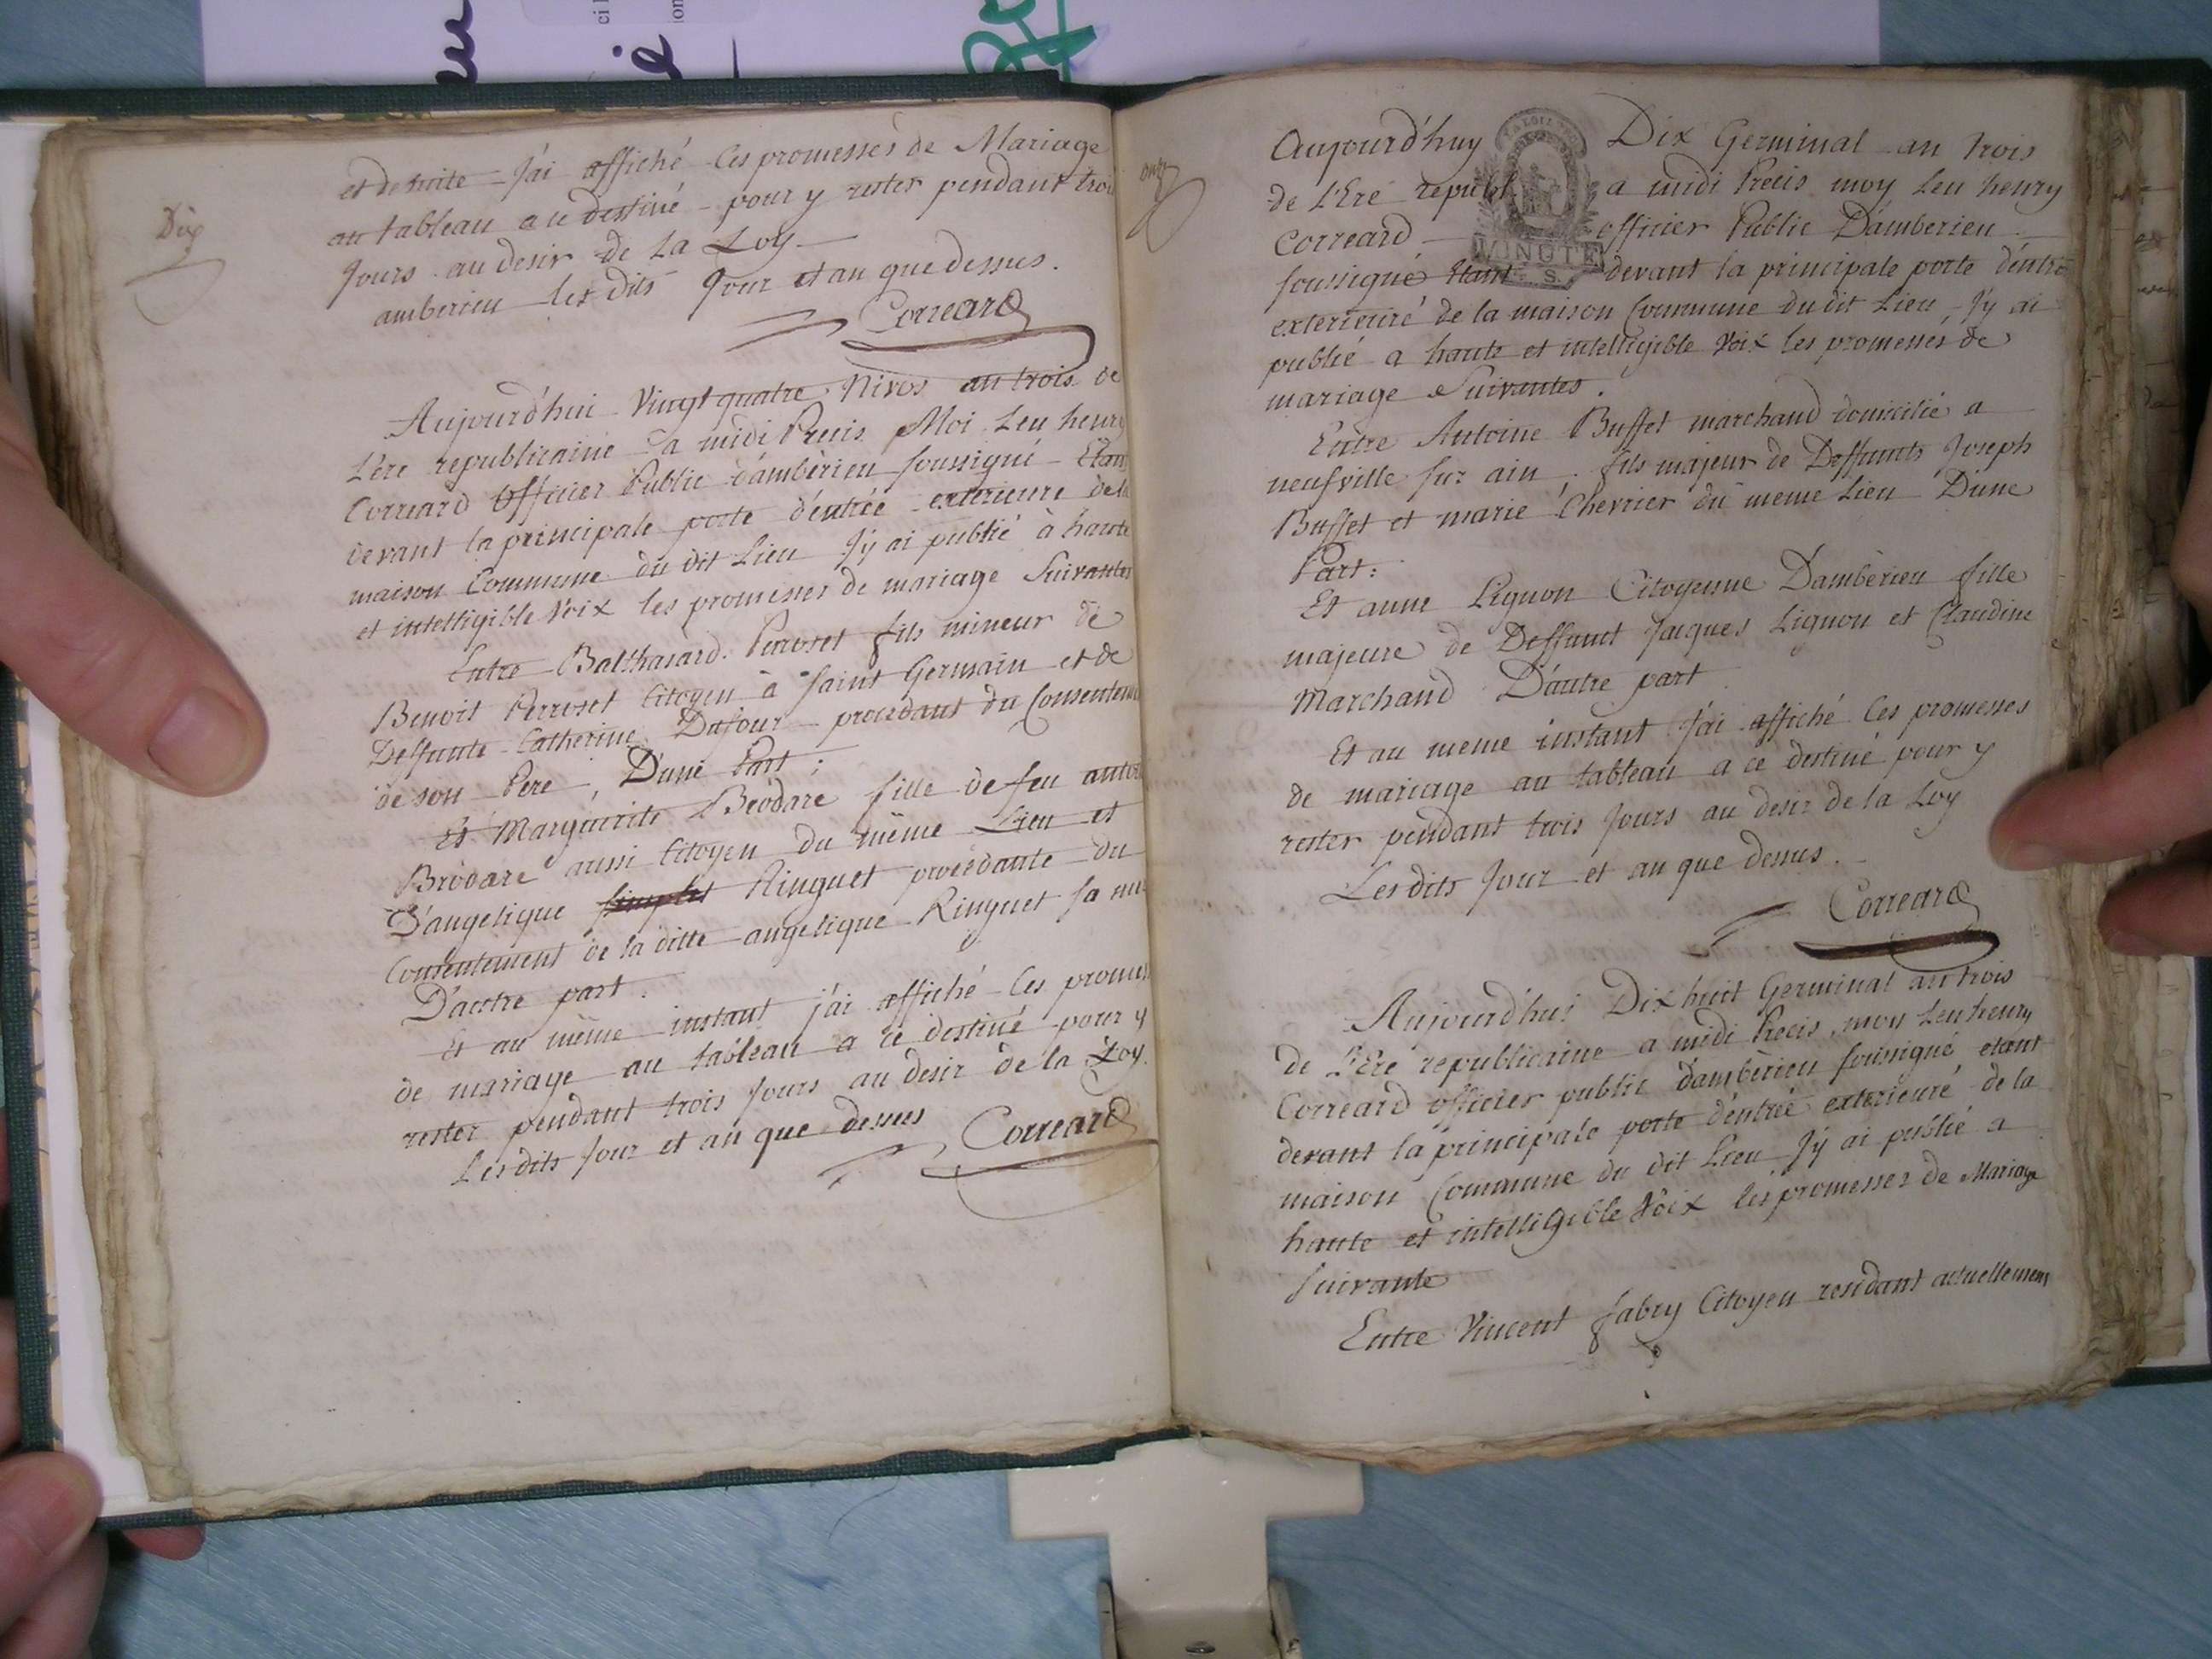 Dix
et de suite j'ai affiché les promesses de Mariage
au tableau a ce destiné pour y rester pendant trois
Jours au desir de La Loy
amberieu les dits Jour et an que dessus.
Correard
Aujourd'hui Vingt quatre Nivos an trois de
L'ere republicaine a midi Precis Moi Leu henry
Correard Officier Public d'ambérieu soussigné Etant
devant la principale porte d'entrée exterieure de la
maison Commune du dit Lieu J'y ai publié à haute
et intelligible Voix les promesses de mariage Suivantes
Entre Balthasard Perroset fils mineur de
Benoit Perroset Citoyen à Saint Germain et de
Deffunte Catherine Dufour procedant du Consentem
de son Pere, D'une Part;
Et Marguerite Brodare fille de feu antoi
Brodare aussi Citoyen du même Lieu et
D'angelique Ringuet procédante du
Consentement de la ditte angelique Ringuet sa me
D'autre part.
Et au même instant j'ai affiché les promes
de mariage au tableau a ce destiné pour y
rester pendant trois Jours au desir de la Loy.
Les dits Jour et an que dessus
Correard
onze
Aujourd'huy Dix Germinal an trois
de L'Ere republ a midi Precis moy Leu henry
Correard officier Public D'amberieu
soussigné Etant devant la principale porte d'entré
exterieure de la maison Commune du dit Lieu, J'y ai
publié a haute et intelligible Voix les promesses de
mariage Suivantes.
MINUTE
S.
Entre Antoine Buffet marchand domicilié a
neufville sur ain, fils majeur de Deffunts Joseph
Buffet et marie Chevrier du meme Lieu D'une
Part:
Et anne Lignon Citoyenne D'ambérieu fille
majeure de Deffunt Jacques Lignon et Claudine
Marchand D'autre part
Et au meme instant J'ai affiché les promesses
de mariage au tableau a ce destiné pour y
rester pendant trois Jours au desir de la Loy
Les dits Jour et an que dessus.
Correard
Aujourd'hui Dix huit Germinal an trois
de L'Ere republicaine a midi Precis, moy Leu henry
Correard officier public d'ambérieu soussigné etant
devant la principale porte d'entrée exterieure de la
maison Commune du dit Lieu, J'y ai publié a
haute et intelligible Voix les promesses de Mariage
suivante
Entre Vincent fabry Citoyen residant actuellement